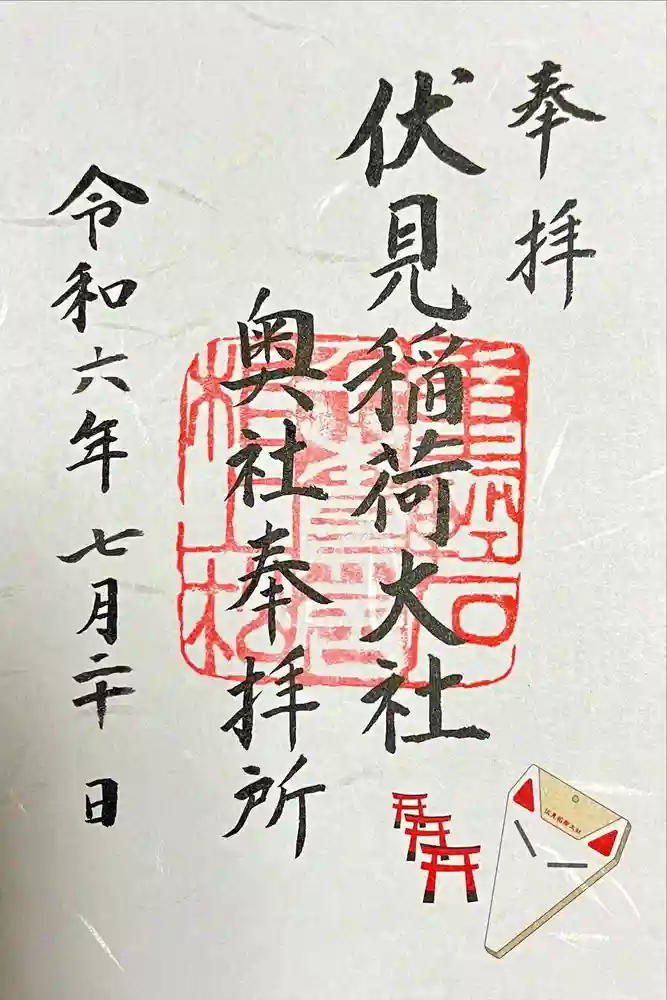 奉拝
伏見稲荷大社
奥社奉拝所
令和六年七月二十日
伏見稲荷大社